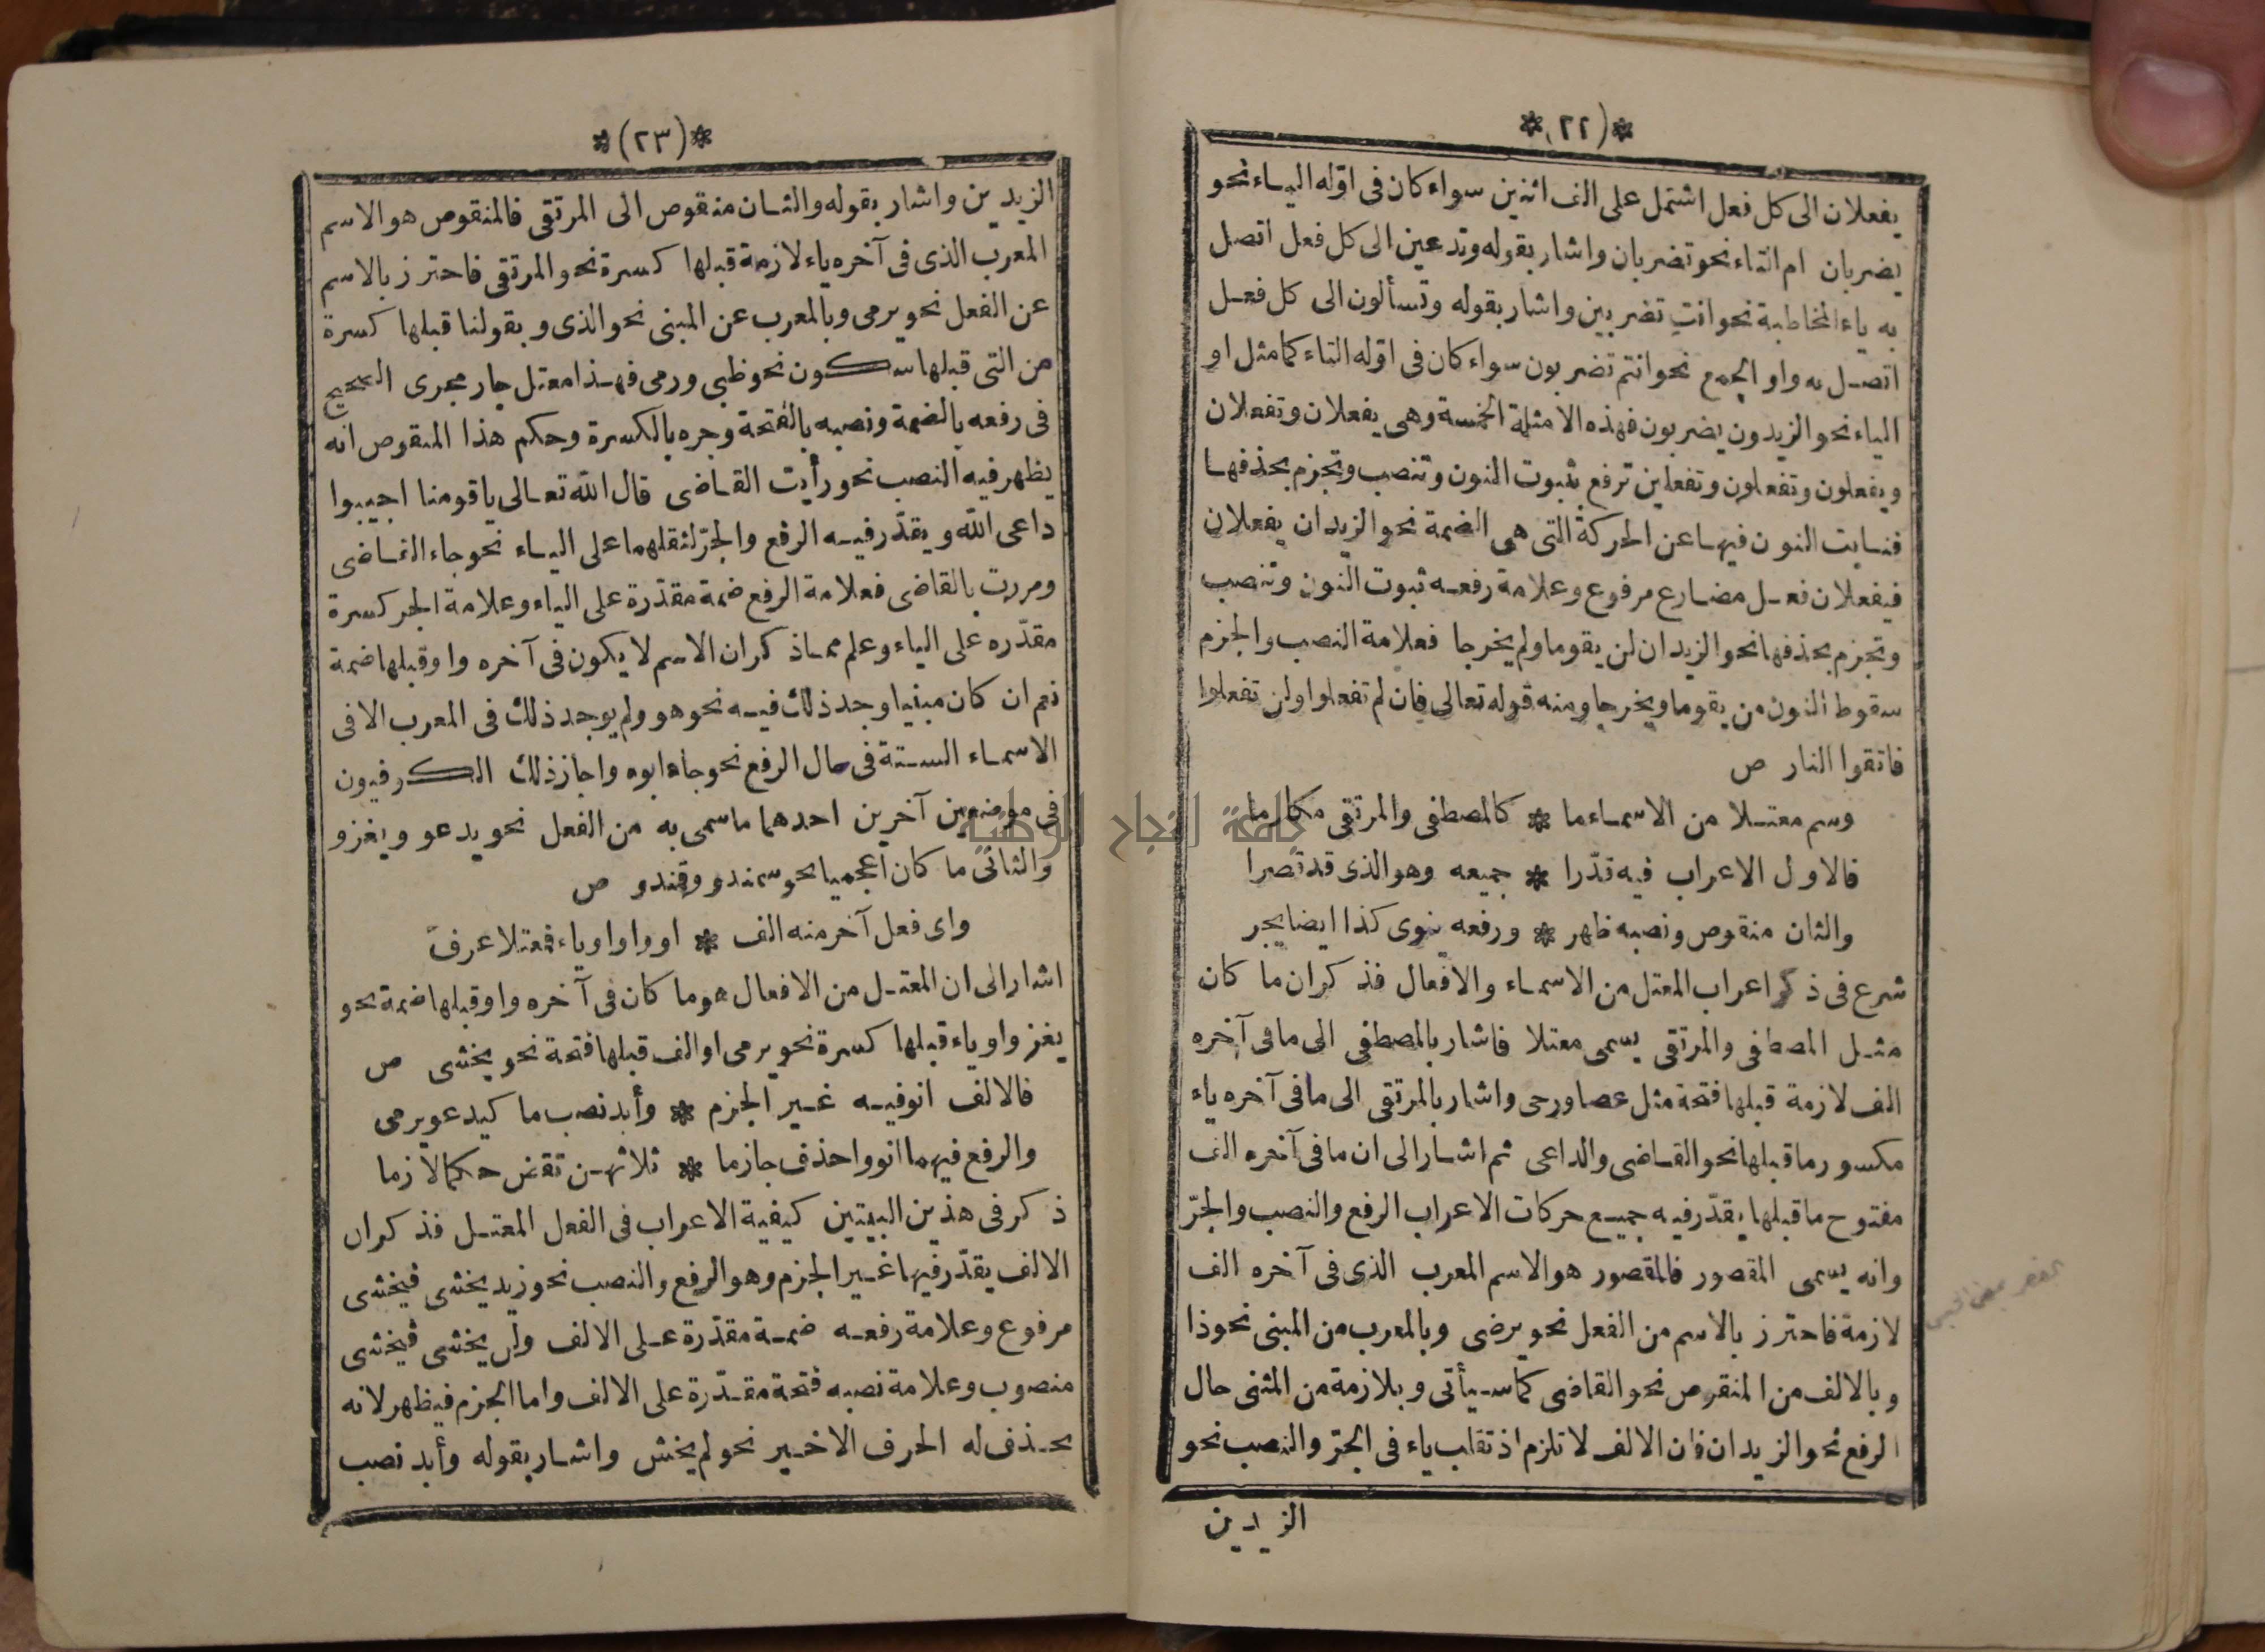 *(٢٢)*
يفعلان الى كل فعل اشتمل على الف اثنين سواء كان فى اوّله الياء نحو
يضربان ام التاء نحو تضربان واشار بقوله وتدعين الى كل فعل اتصل
به ياء المخاطبة نحو انتِ تضربين واشار بقوله وتسألون الى كل فعل
اتصل به واو الجمع نحو انتم تضربون سواء كان فى اوّله التاء كما مثل او
الياء نحو الزيدون يضربون فهذه الامثلة الخمسة وهى يفعلان وتفعلان
ويفعلون وتفعلون وتفعلين ترفع بثبوت النون وتنصب وتجزم بحذفها
فنابت النون فيها عن الحركة التى هى الضمة نحو الزيدان يفعلان
فيفعلان فعل مضارع مرفوع وعلامة رفعه ثبوت النون وتنصب
وتجزم بحذفها نحو الزيدان لن يقوما ولم يخرجا فعلامة النصب والجزم
سقوط النون من يقوما ويخرجا ومنه قوله تعالى فان لم تفعلوا ولن تفعلوا
فاتقوا النار ص
وسم معتلا من الاسماء ما * كالمصطفى والمرتقى مكارما
فالاول الاعراب فيه قدّرا * جميعه وهو الذى قد قصرا
والثان منقوص ونصبه ظهر * ورفعه ينوى كذا ايضا يجر
شرع فى ذكر اعراب المعتل من الاسماء والافعال فذكر ان ما كان
مثل المصطفى والمرتقى يسمى معتلا فاشار بالمصطفى الى ما فى آخره
الف لازمة قبلها فتحة مثل عصا ورحى واشار بالمرتقى الى ما فى آخره ياء
مكسور ما قبلها نحو القاضى والداعى ثم اشار الى ان ما فى آخره الف
مفتوح ما قبلها يقدّر فيه جميع حركات الاعراب الرفع والنصب والجرّ
وانه يسمى المقصور فالمقصور هو الاسم المعرب الذى فى آخره الف
لازمة فاحترز بالاسم من الفعل نحو يرضى وبالمعرب من المبنى نحو ذا
وبالالف من المنقوص نحو القاضى كما سيأتى وبلازمة من المثنى حال
الرفع نحو الزيدان فان الالف لا تلزم اذ تقلب ياء فى الجرّ والنصب نحو
الزيدين
*(٢٣)*
الزيدين واشار بقوله والثان منقوص الى المرتقى فالمنقوص هو الاسم
المعرب الذى فى آخره ياء لازمة قبلها كسرة نحو المرتقى فاحترز بالاسم
عن الفعل نحو يرمى وبالمعرب عن المبنى نحو الذى وبقولنا قبلها كسرة
من التى قبلها سكون نحو ظبى ورمى فهذا معتل جار مجرى الصحيح
فى رفعه بالضمة ونصبه بالفتحة وجره بالكسرة وحكم هذا المنقوص انه
يظهر فيه النصب نحو رأيت القاضى قال الله تعالى ياقومنا اجيبوا
داعى الله ويقدّر فيه الرفع والجرّ لثقلهما على الياء نحو جاء القاضى
ومررت بالقاضى فعلامة الرفع ضمة مقدّرة على الياء وعلامة الجر كسرة
مقدّره على الياء وعلم مما ذكر ان الاسم لا يكون فى آخره واو قبلها ضمة
نعم ان كان مبنيا وجد ذلك فيه نحو هو ولم يوجد ذلك فى المعرب الا فى
الاسماء الستة فى حال الرفع نحو جاء ابوه واجاز ذلك الكوفيون
فى موضعين آخرين احدهما ما سمى به من الفعل نحو يدعو ويغزو
والثانى ما كان اعجميا نحو سمندو وقمندو ص
واى فعل آخر منه الف * او واو او ياء فمعتلا عرف
اشار الى ان المعتل من الافعال هو ما كان فى آخره واو قبلها ضمة نحو
يغزو او ياء قبلها كسرة نحو يرمى او الف قبلها فتحة نحو يخشى ص
فالالف انو فيه غير الجزم * وأبد نصب ما كيدعو يرمى
والرفع فيهما انو واحذف جازما * ثلاثهن تقض حكما لازما
ذكر فى هذين البيتين كيفية الاعراب فى الفعل المعتل فذكر ان
الالف يقدّر فيها غير الجزم وهو الرفع والنصب نحو زيد يخشى فيخشى
مرفوع وعلامة رفعه ضمة مقدّرة على الالف ولن يخشى فيخشى
منصوب وعلامة نصبه فتحة مقدّرة على الالف واما الجزم فيظهر لانه
يحذف له الحرف الاخير نحو لم يخش واشار بقوله وأبد نصب
جامعة النجاح الوطنية